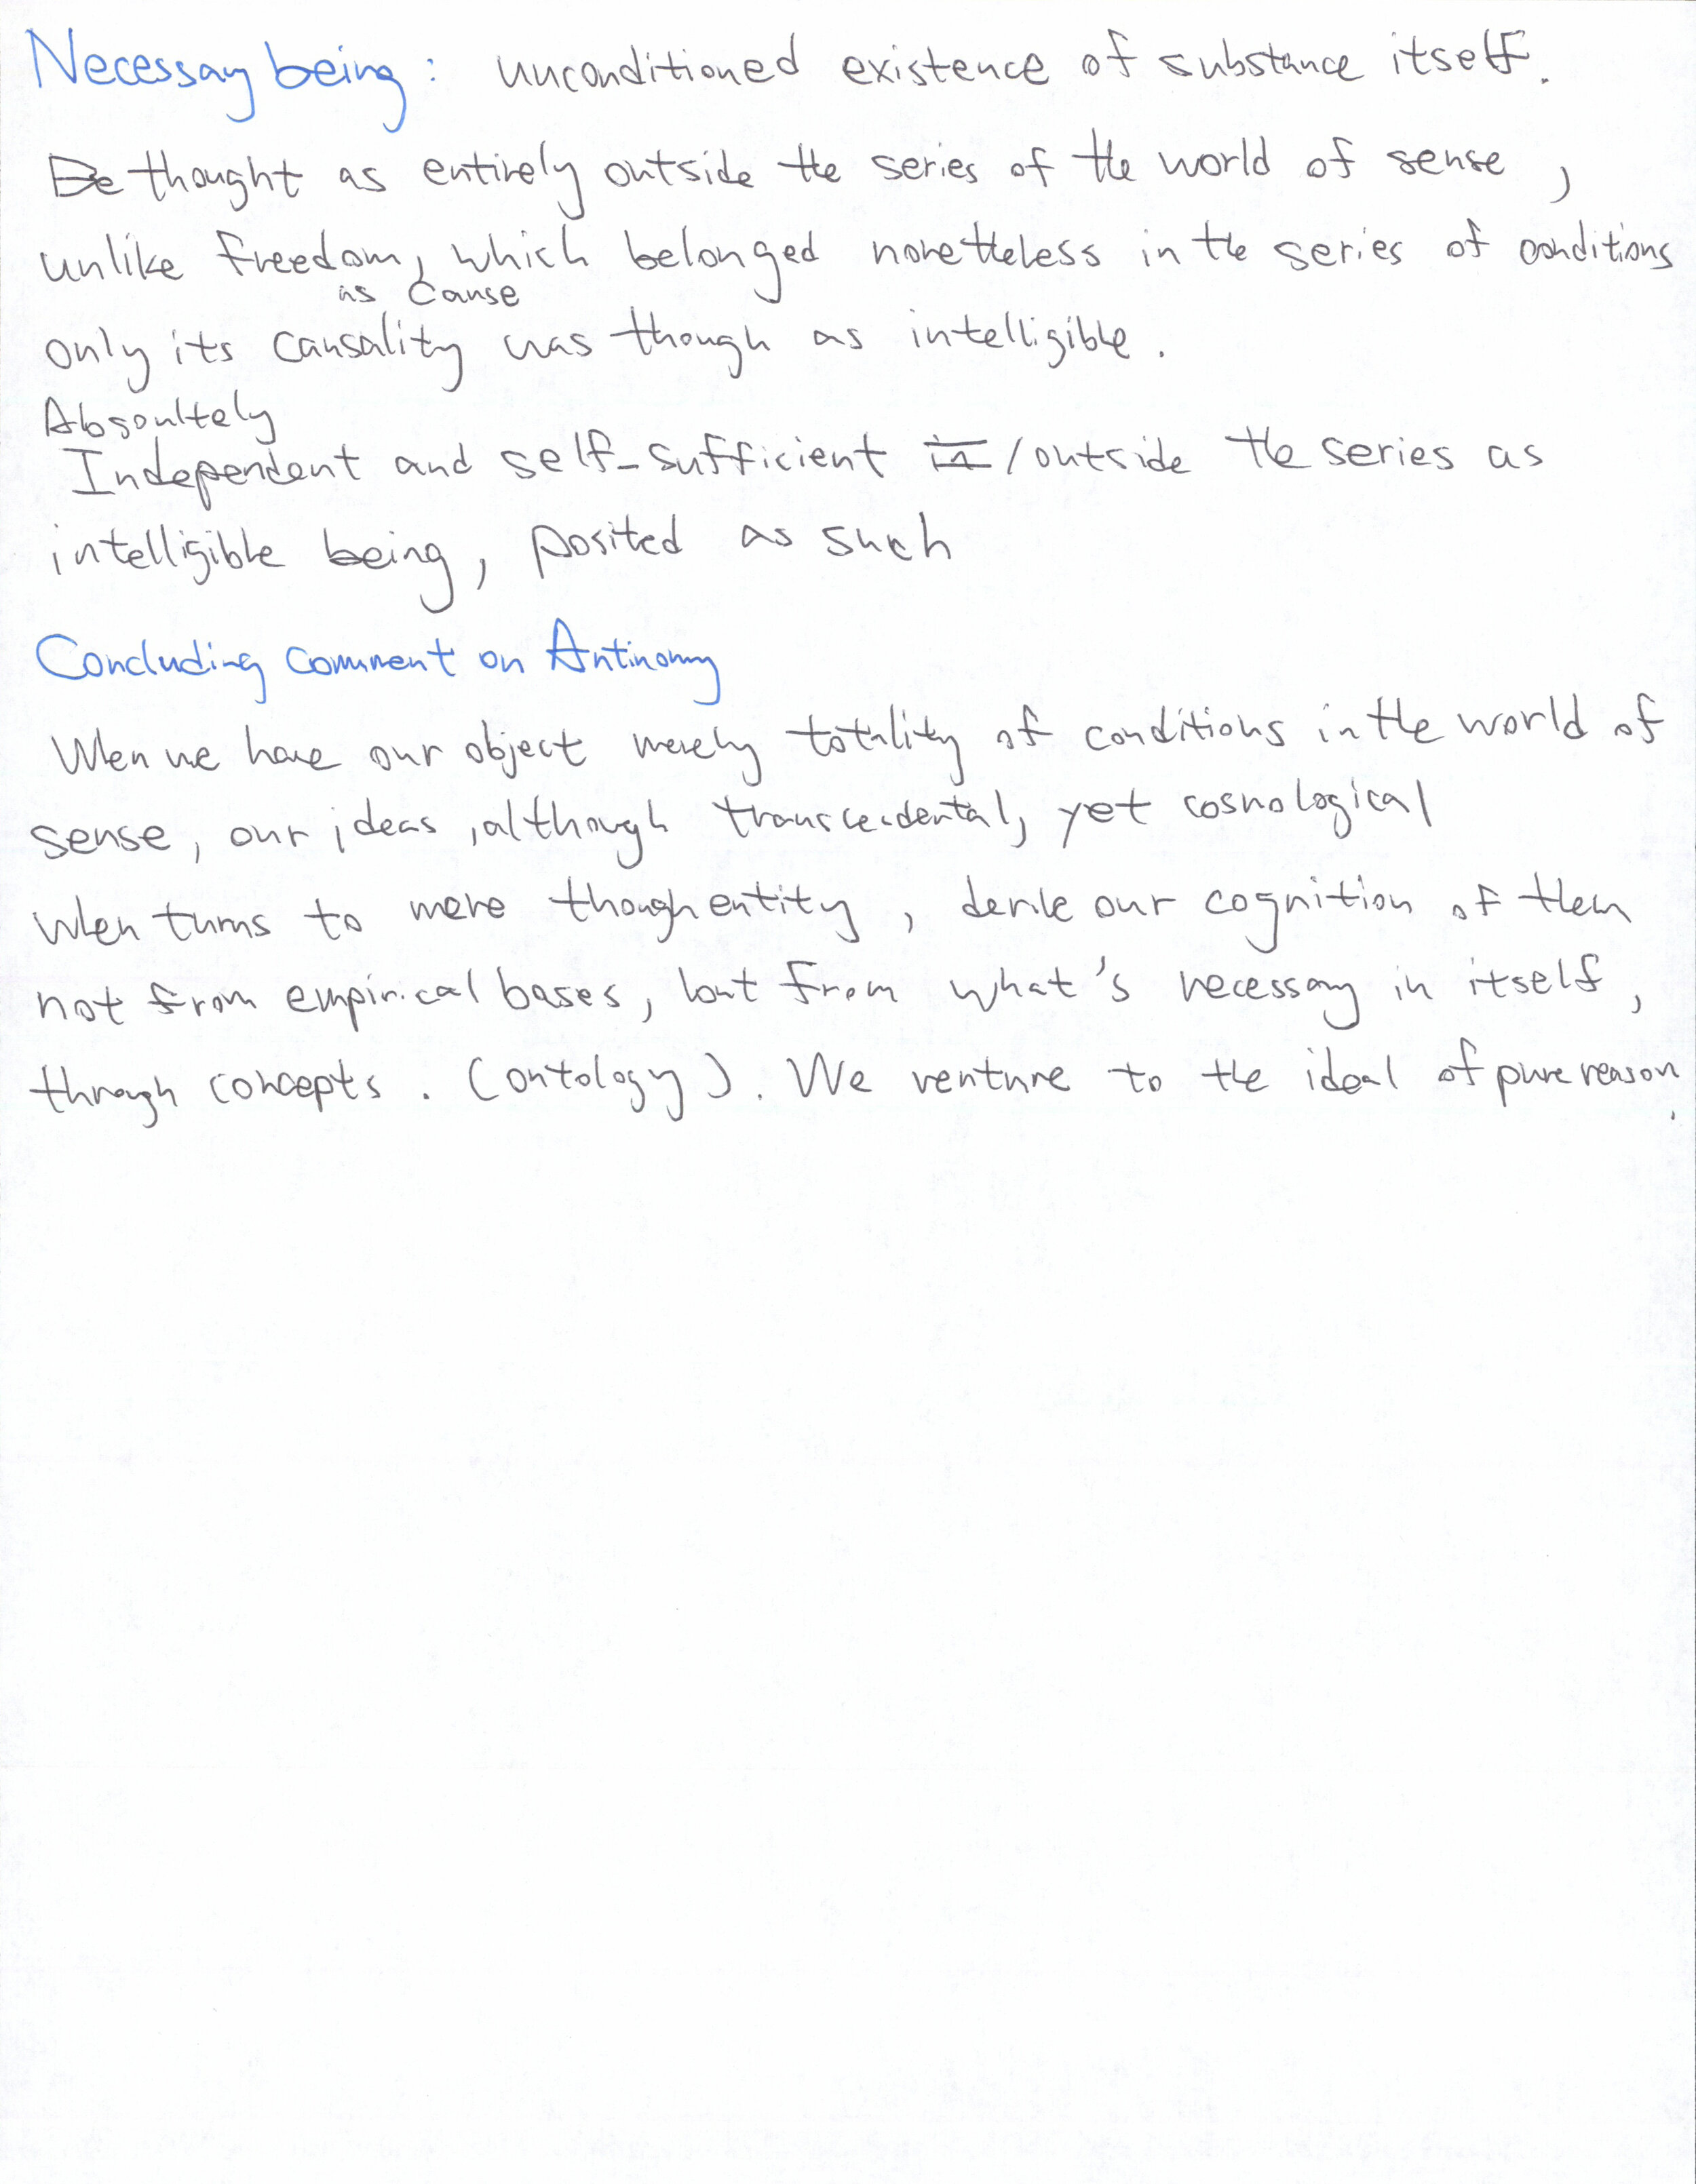 Necessay being: unconditioned existence of substance itself.
Be thought as entirely outside the series of the world of sense,
unlike freedom, which belonged nonetheless in the series of conditions
as cause
only its causality was though as intelligible.
Absoultely
Independent and self-sufficient in/outside the series as
intelligible being, posited as such
Concluding comment on Antinomy
When we have our object merely totality of conditions in the world of
sense, our ideas, although transcedental, yet cosmological
when turns to mere though entity, derive our cognition of them
not from empirical bases, but from what's necessay in itself,
through concepts. (ontology). We venture to the ideal of pure reason.